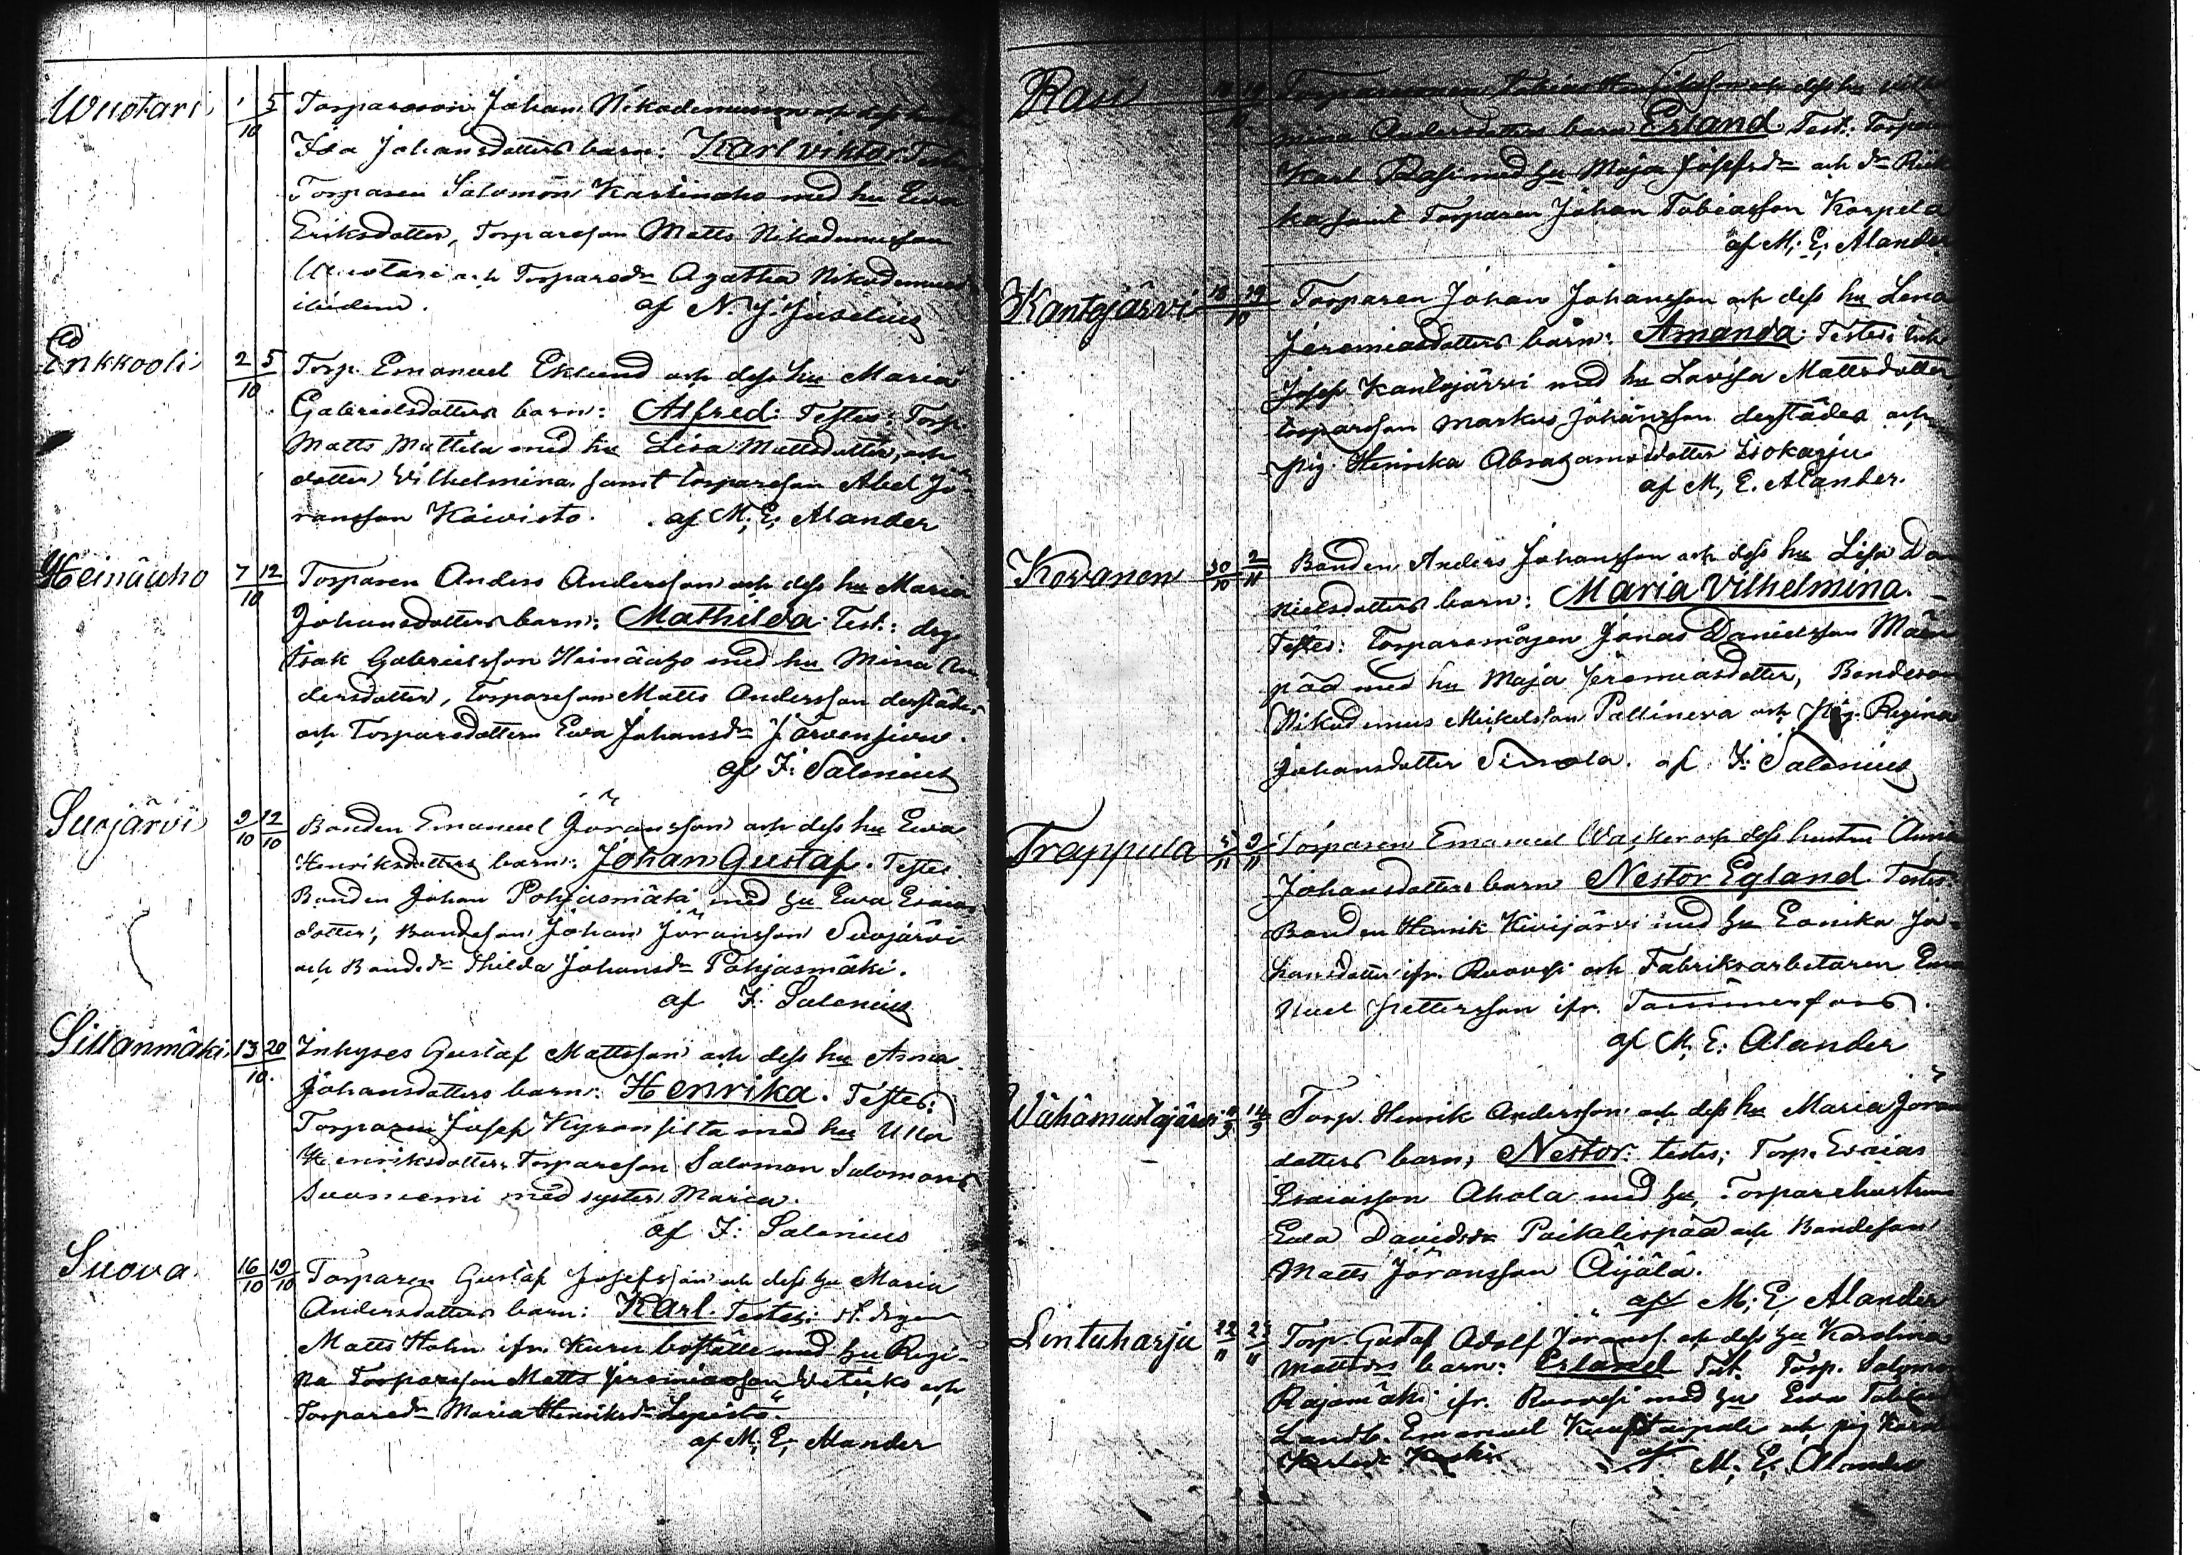 Wuotari 1 5/10 Torpareson Johan Nikodemusson och dess hustru
Ida Johansdotters barn: Karl viktor. Testes:
Torparen Salomon Kartinaho med hu Ewa
Eriksdotter, Torpareson Matts Nikodemusson
Wuotari och Torpareda Agatha Nikodemusd
ibidem. af N. J. Juselius
Enkkooli 2 5/10 Torp. Emanuel Eklund och dess hu Maria
Gabrielsdotters barn: Alfred: Testes: Torp.
Matts Mattila med hu Lisa Mattsdotter, och
dotter Vilhelmina, samt torpareson Abel Jö-
ransson Koivisto. af M. E. Alander
Heinäaho 7 12/10 Torparen Anders Andersson och dess hu Maria
Johansdotters barn: Mathilda. Test.:
Isak Gabrielsson Heinäaho med hu Mina An
dersdotter, torpareson Matts Andersson derstädes
och Torparedottern Ewa Johansda Järvensivu.
af F: Salenius
Suojärvi 9/10 12/10 Bonden Emanuel Göransson och dess hu Ewa
Henriksdotters barn: Johan Gustaf. Testes.
Bonden Johan Pohjasmäki med hu Ewa Esaias
dotter, Bondeson Johan Jöransson Suojärvi
och Bondeda Thilda Johansda Pohjasmäki.
af F. Salenius
Sillanmäki 13 20/10. Inhyses Gustaf Mattsson och dess hu Anna
Johansdotters barn: Henrika. Testes:
Torparen Josef Kyrönsilta med hu Ulla
Henriksdotter, Torpareson Salomon Salomons
Suoniemi med syster Maria.
af F: Salenius
Suova 16/10 19/10 Torparen Gustaf Josefsson och dess hu Maria
Andersdotters barn: Karl. Testes:
Matts Hahn ifr. Kuru boställe med hu Regi-
na Torpareson Matts Jeremiasson och
Torpareda Maria Henriksda Lepistö.
af M. E. Alander
Rasi Torparesonen Tobias och dess hu Vilhel
mina Andersdotters barn Erland. Test.: Torparen
Karl Rasi med hu Maja Josefsda och da
ka samt Torparen Johan Tobiasson Korpela
af M. E. Alander
Kantojärvi 18 19/10 Torparen Johan Johansson och dess hu Lena
Jeremiasdotters barn: Amanda. Testes:
Josef Kantojärvi med hu Lovisa Mattsdotter
torpareson Markus Johansson derstädes och
pig. Henrika Abrahamsdotter Isokarju
af M. E. Alander.
Kovanen 30/10 2/11 Bonden Anders Johansson och dess hu Lisa Da
nielsdotters barn: Maria Vilhelmina.
Testes: Torparemågen Jonas Danielsson Mäen
pää med hu Maja Jeremiasdotter, Bondeson
Nikodemus Mickelsson Pallineva och pig. Regina
Johansdotter Simola. af F: Salenius
Trappula 5/11 9/11 Torparen Emanuel och dess hustru Anna
Johansdotters barn Nestor Egland Testes:
Bonden Henrik Kivijärvi med hu Eonika Jo-
hansdotter ifr. Ruovesi och Fabriksarbetaren Ema
nuel Pettersson ifr. Tammerfors.
af M. E. Alander
Wähämustajärvi Torp. Henrik Andersson och dess hu Maria Jörans
dotters barn, Nestor: testes; Torp. Esaias
Esaiasson Ahola med hu, Torparehustrun
Ewa Davidsda Poikelispää och Bondeson
Matts Jöransson Äijälä.
af M. E. Alander
Lintuharju 22/11 23/11 Torp. Gustaf Adolf Göranss. och dess hu Karolina
Mattsdrs barn: Erland Test. Torp. Salomon
Rajamäki ifr. Ruovesi med hu Ewa
Landb. Emanuel och pig
af M. E. Alander